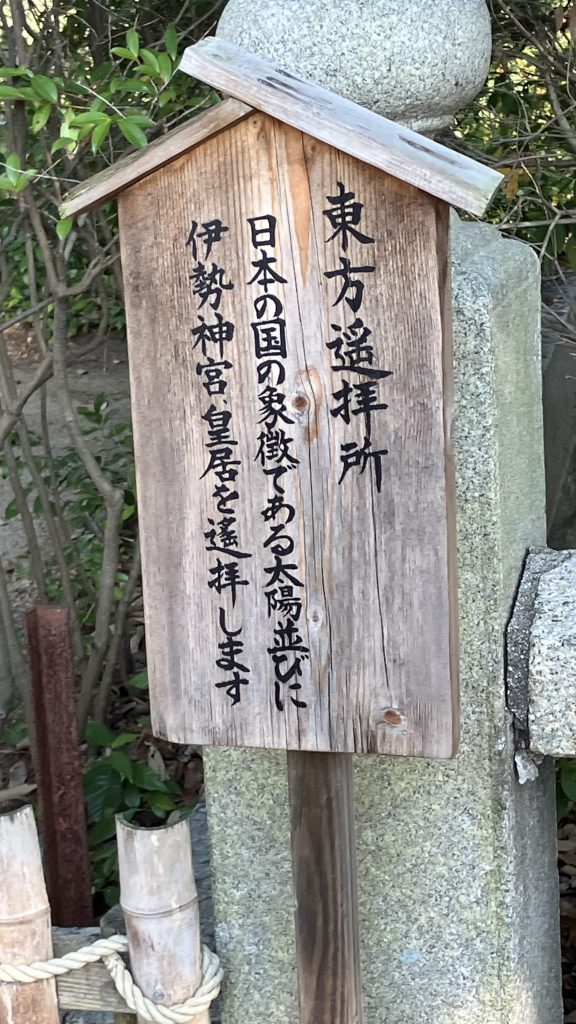 東方遥拝所
日本の国の象徴である太陽並びに
伊勢神宮、皇居を遥拝します